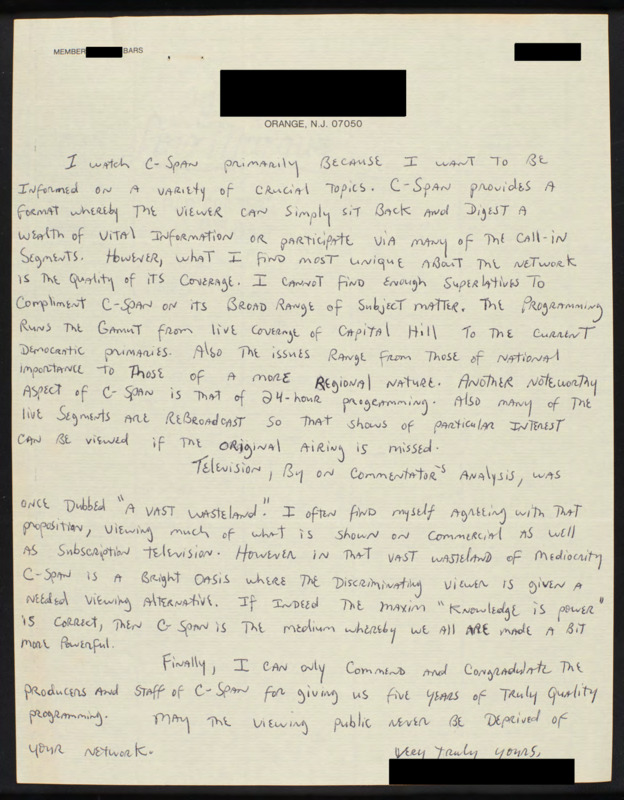 MEMBER BARS
ORANGE, N.J. 07050
I watch C-Span primarily Because I want to Be
Informed on a variety of crucial topics. C-Span provides a
format whereby the viewer can simply sit Back and Digest a
wealth of vital Information or participate via many of the call-in
Segments. However, what I find most unique about the network
is the Quality of its Coverage. I cannot find enough Superlatives to
Compliment C-Span on its Broad Range of Subject matter. The Programming
Runs the Gamut from live coverage of Capital Hill to the current
Democratic primaries. Also the issues Range from those of national
importance to those of a more Regional nature. Another noteworthy
Aspect of C-Span is that of 24-hour programming. Also many of the
live Segments are ReBroadcast so that shows of particular Interest
can be viewed if the original airing is missed.
Television, By on Commentator's Analysis, was
once Dubbed "a vast wasteland." I often find myself agreeing with that
proposition, viewing much of what is shown on commercial as well
as Subscription television. However in that vast wasteland of mediocrity
C-Span is a Bright Oasis where the Discriminating viewer is given a
needed viewing alternative. If Indeed the maxim "Knowledge is power"
is correct, then C-Span is the medium whereby we all are made a Bit
more powerful.
Finally, I can only Commend and Congradulate the
producers and staff of C-Span for giving us five years of Truly Quality
programming. May the viewing public never Be Deprived of
your network.
Very truly yours,